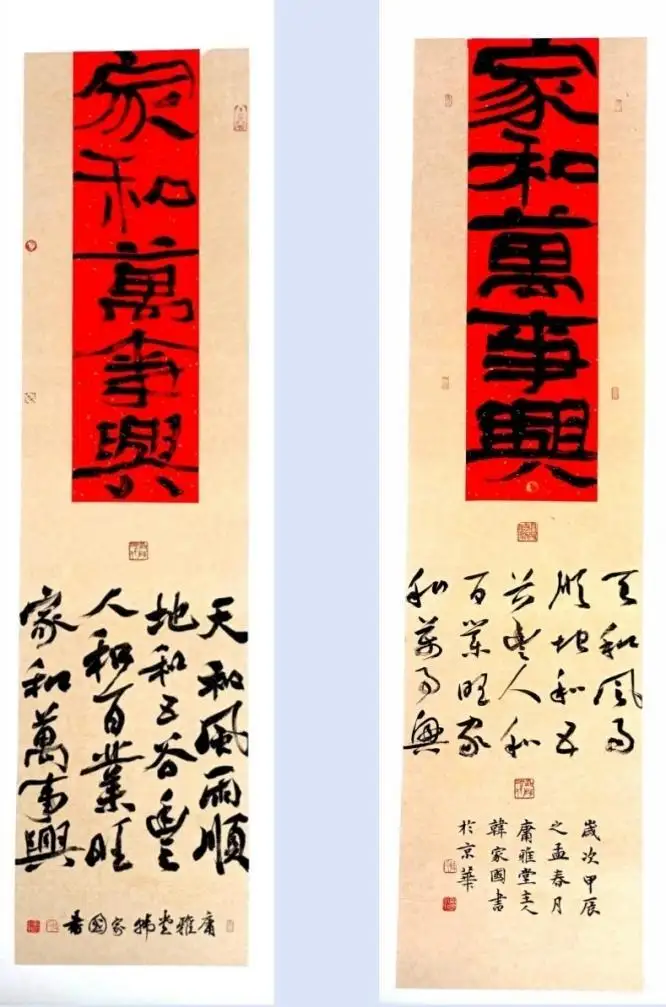 家和萬事興
天和風雨順
地和五谷豐
人和百業旺
家和萬事興
庸雅堂韩家國書
家和萬事興
天和風雨
順地和五
谷豐人和
百業旺家
和萬事興
歲次甲辰
之孟春月
庸雅堂主人
韓家國書
於京華